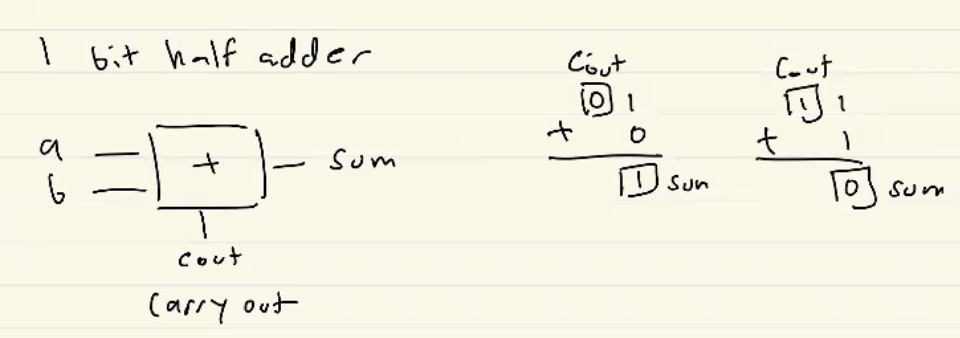 1 bit half adder
a
b
+
sum
cout
carry out
Cout
0 1
+ 0
1 sum
Cout
1 1
+ 1
0 sum